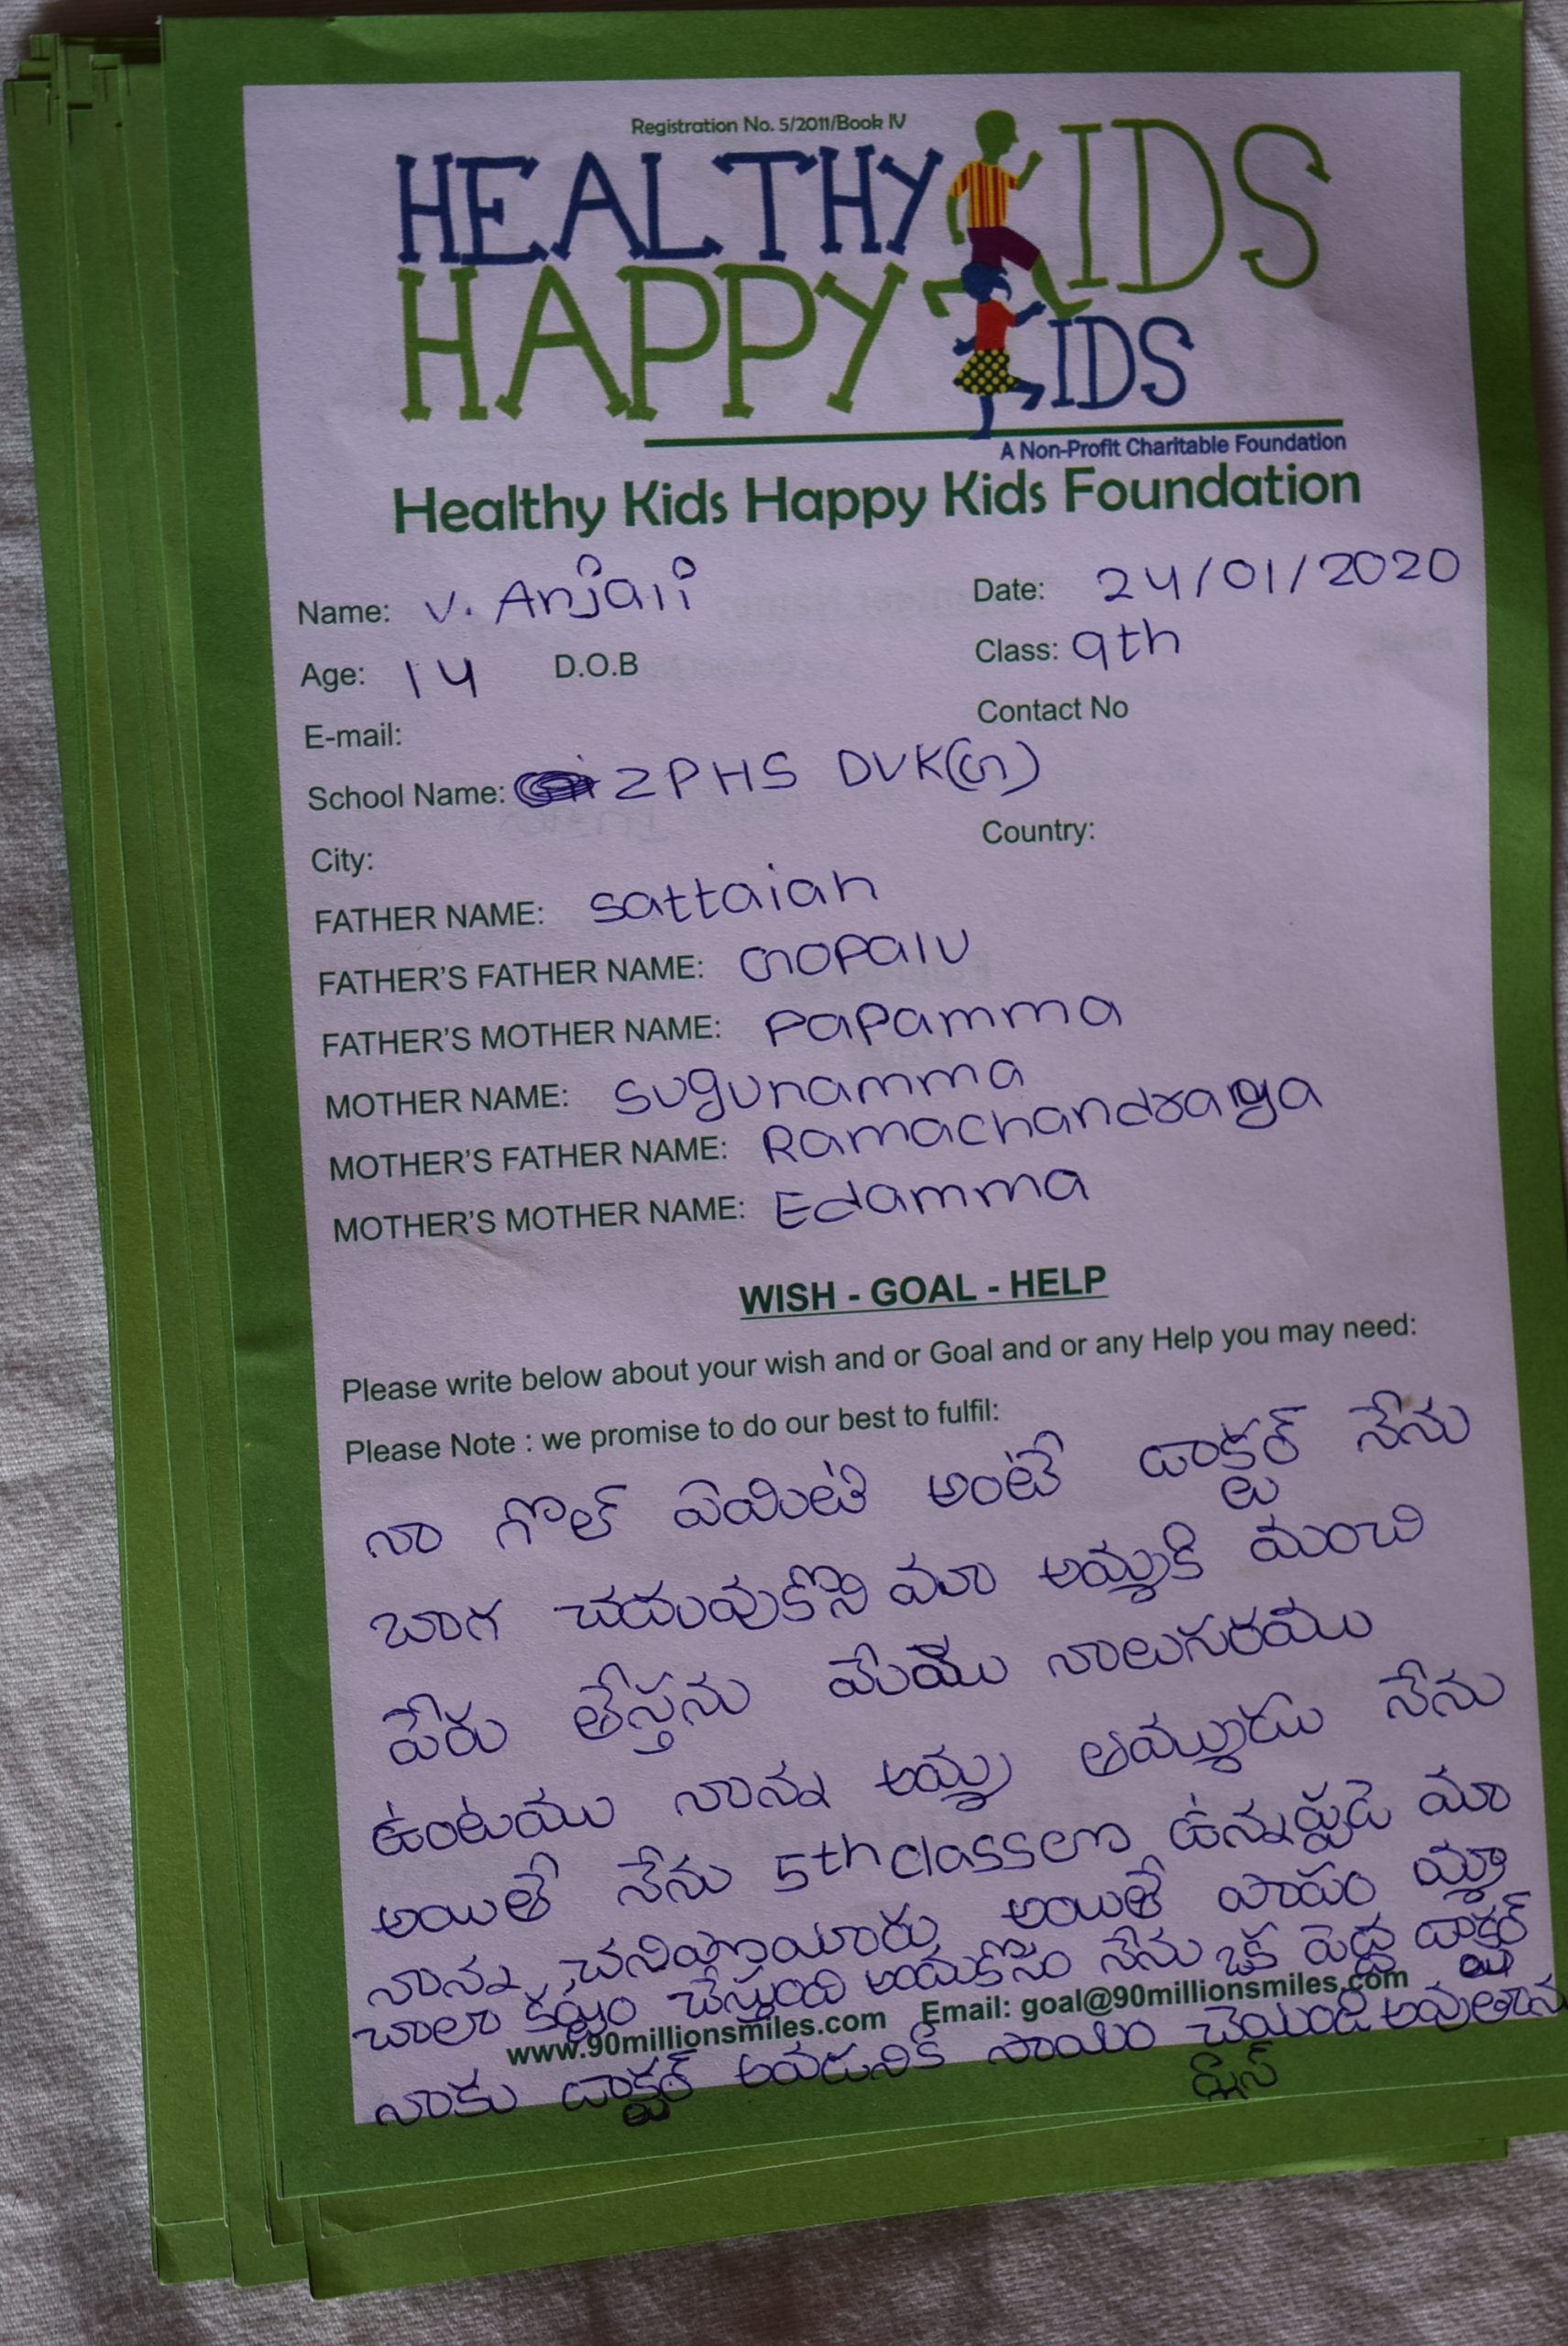 Registration No. 5/2011/Book IV
HEALTHY KIDS
HAPPY KIDS
A Non-Profit Charitable Foundation
Healthy Kids Happy Kids Foundation
Name: V. Anjali Date: 24/01/2020
Age: 14 D.O.B Class: 9th
E-mail: Contact No
School Name: ZPHS DVK(G)
City: Country:
FATHER NAME: Sattaiah
FATHER'S FATHER NAME: Gopalu
FATHER'S MOTHER NAME: Papamma
MOTHER NAME: Sugunamma
MOTHER'S FATHER NAME: Ramachandraya
MOTHER'S MOTHER NAME: Edamma
WISH - GOAL - HELP
Please write below about your wish and or Goal and or any Help you may need:
Please Note : we promise to do our best to fulfil:
నా గొల్ ఏయిటి అంటే డాక్టర్ నేను
బాగ చదువుకొని మా అమ్మకి మంచి
పేరు తేస్తను మేము నాలుగురము
ఉంటము నాన్న అమ్మ తమ్ముడు నేను
అయితే నేను 5th classలొ ఉన్నప్పుడె మా
నాన్న చనిపొయారు అయితే పాపం మా
చాలా కష్టం చేస్తుంది అందుకోసం నేను ఒక పెద్ద డాక్టర్
www.90millionsmiles.com Email: goal@90millionsmiles.com
నాకు డాక్టర్ అవడనికి సాయం చెయండి అవుతాన